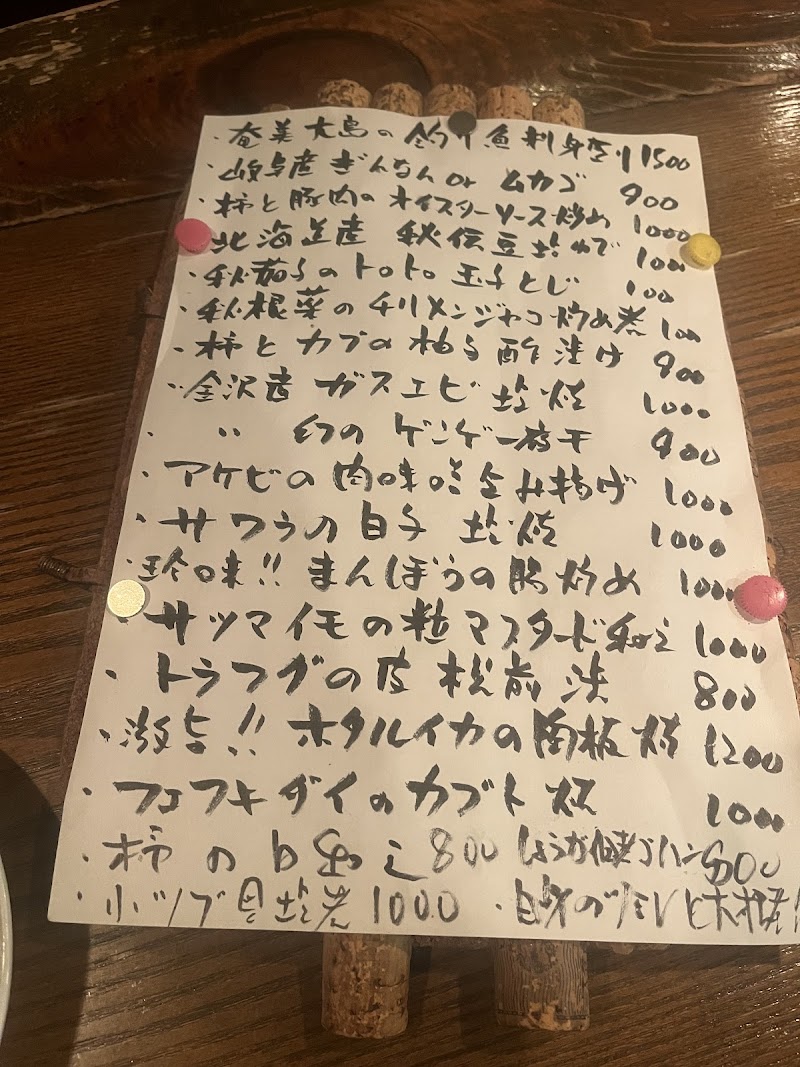 ・奄美大島の釣り魚刺身盛り 1500
・岐阜産ぎんなんor ムカゴ 900
・柿と豚肉のオイスターソース炒め 1000
・北海道産 秘伝豆塩ゆで
・秋茄子のトロトロ玉子とじ
・秋根菜のチリメンジャコ炒め煮
・柿とカブの柚子酢漬け 900
・金沢産 ガスエビ塩焼 1000
・〃 幻のゲンゲ一夜干 900
・アケビの肉味噌包み揚げ 1000
・サワラの白子 塩焼 1000
・珍味!! まんぼうの腸炒め 1000
・サツマイモの粒マスタード和え 1000
・トラフグの皮 松前漬 800
・激旨!! ホタルイカの陶板焼 1200
・フエフキダイのカブト焼 1000
・柿の白和え 800 しょうが佃煮ゴハン 500
・小ツブ貝塩煮 1000 ・自家の